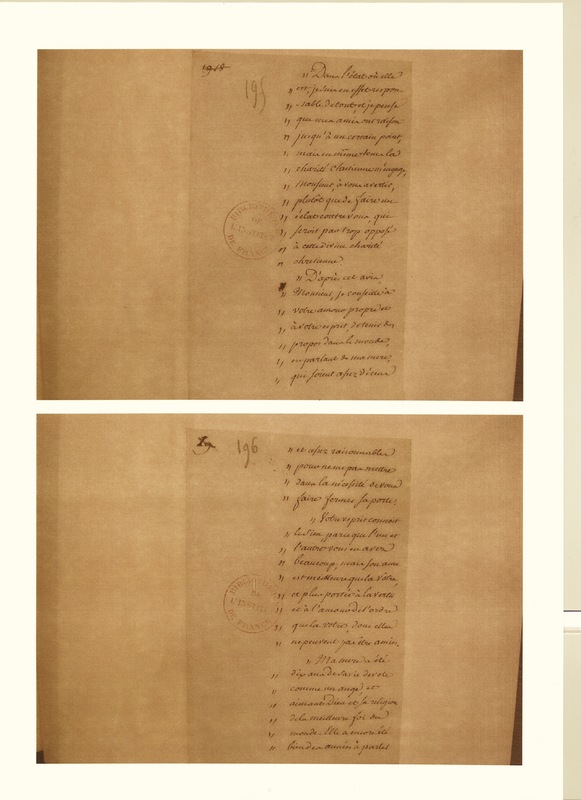 195
" Dans l'état où elle
" est, je suis en effet respon
" -sable de tout, et je pense
" que mes amis ont raison
" jusqu'à un certain point,
" mais en même tems la
" charité chrétienne m'engage,
" Monsieur, à vous avertir,
" plutôt que de faire un
" éclat contre vous, qui
" seroit par trop opposé
" à cette divine charité
" chretienne.
" D'après cet avis,
" Monsieur, je conseille à
" votre amour propre et
" à votre esprit, de tenir des
" propos dans le monde,
" en parlant de ma mere,
" qui soient assez
BIBLIOTHEQUE DE L'INSTITUT DE FRANCE
196
" et assez raisonnables
" pour ne me pas mettre
" dans la nécéssité de vous
" faire fermer sa porte.
" Votre esprit connoit
" le sien, parce que l'un et
" l'autre vous en avez
" beaucoup, mais son ame
" est meilleure que la vôtre,
" et plus portée à la vertu
" et à l'amour de l'ordre
" que la votre, donc elles
" ne peuvent pas être amies.
" Ma mere a été
" dix ans de sa vie devote
" comme un ange, et
" aimant Dieu et sa religion
" de la meilleure foi du
" monde. Elle a encore été
" bien des années à
BIBLIOTHEQUE DE L'INSTITUT DE FRANCE